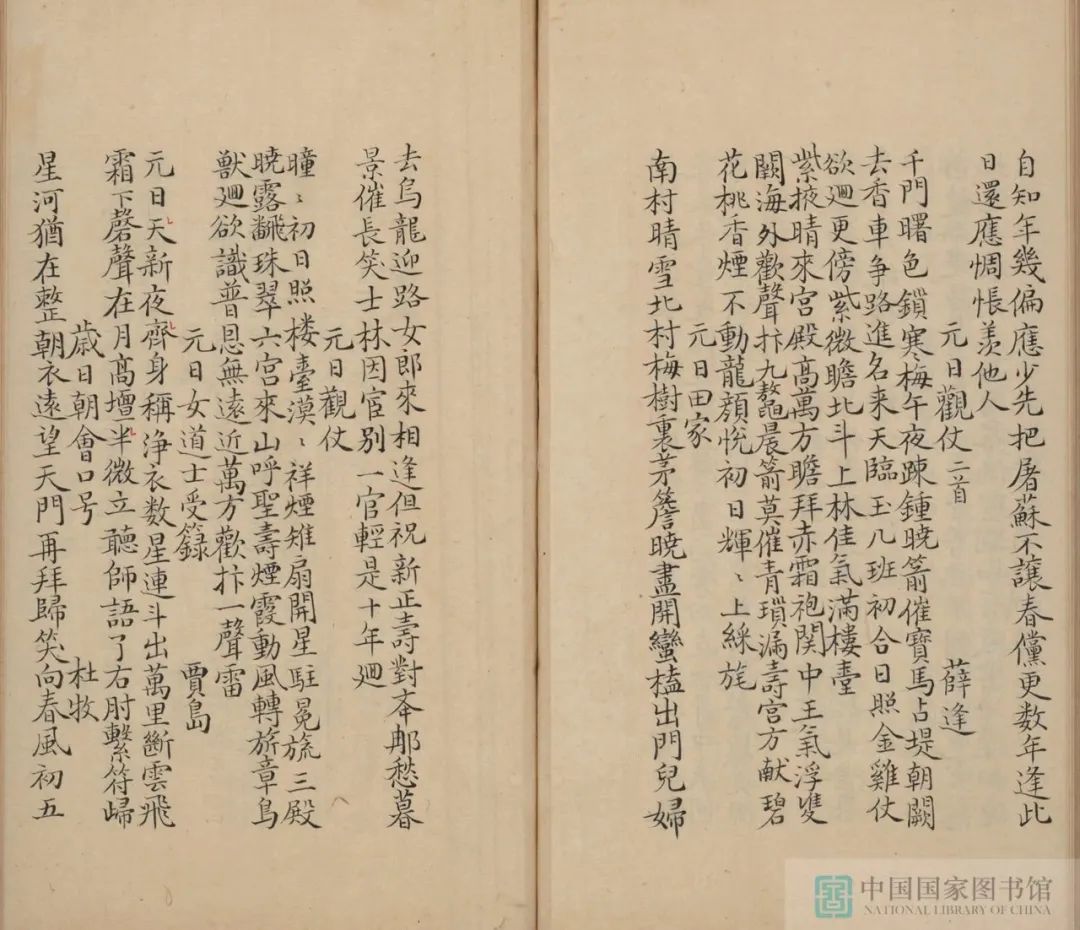 自知年幾偏應少先把屠蘇不讓春儻更数年逢此
日還應惆悵羡他人
元日觀仗二首 薛逢
千門曙色鎖寒梅午夜踈鍾曉箭催寶馬占堤朝闕
去香車争路進名来天臨玉几班初合日照金雞仗
欲迴更傍紫微瞻北斗上林佳氣滿樓臺
紫掖晴來宮殿高萬方瞻拜赤霜袍関中王氣浮雙
闕海外歡聲抃九鼇晨箭莫催青瑣漏壽宫方献碧
花桃香煙不動龍顔悅初日輝〻上綵旄
元日田家
南村晴雪北村梅樹裏茅簷曉盡開蠻榼出門兒婦
去烏龍迎路女郎來相逢但祝新正壽對夲那愁暮
景催長笑士林因宦别一官輕是十年廻
元日觀仗
曈〻初日照楼臺漠〻祥煙雉扇開星駐冕旒三殿
曉露飜珠翠六宮來山呼聖壽煙霞動風轉旂章鳥
獸廻欲識普恩無遠近萬方歡抃一聲雷
元日女道士受籙 賈島
元日天新夜齊身称淨衣数星連斗出萬里斷雲飛
霜下磬聲在月髙壇半微立聽師語了右肘繫符歸
歳日朝會口号 杜牧
星河猶在整朝衣遠望天門再拜歸笑向春風初五
中国国家图书馆
NATIONAL LIBRARY OF CHINA